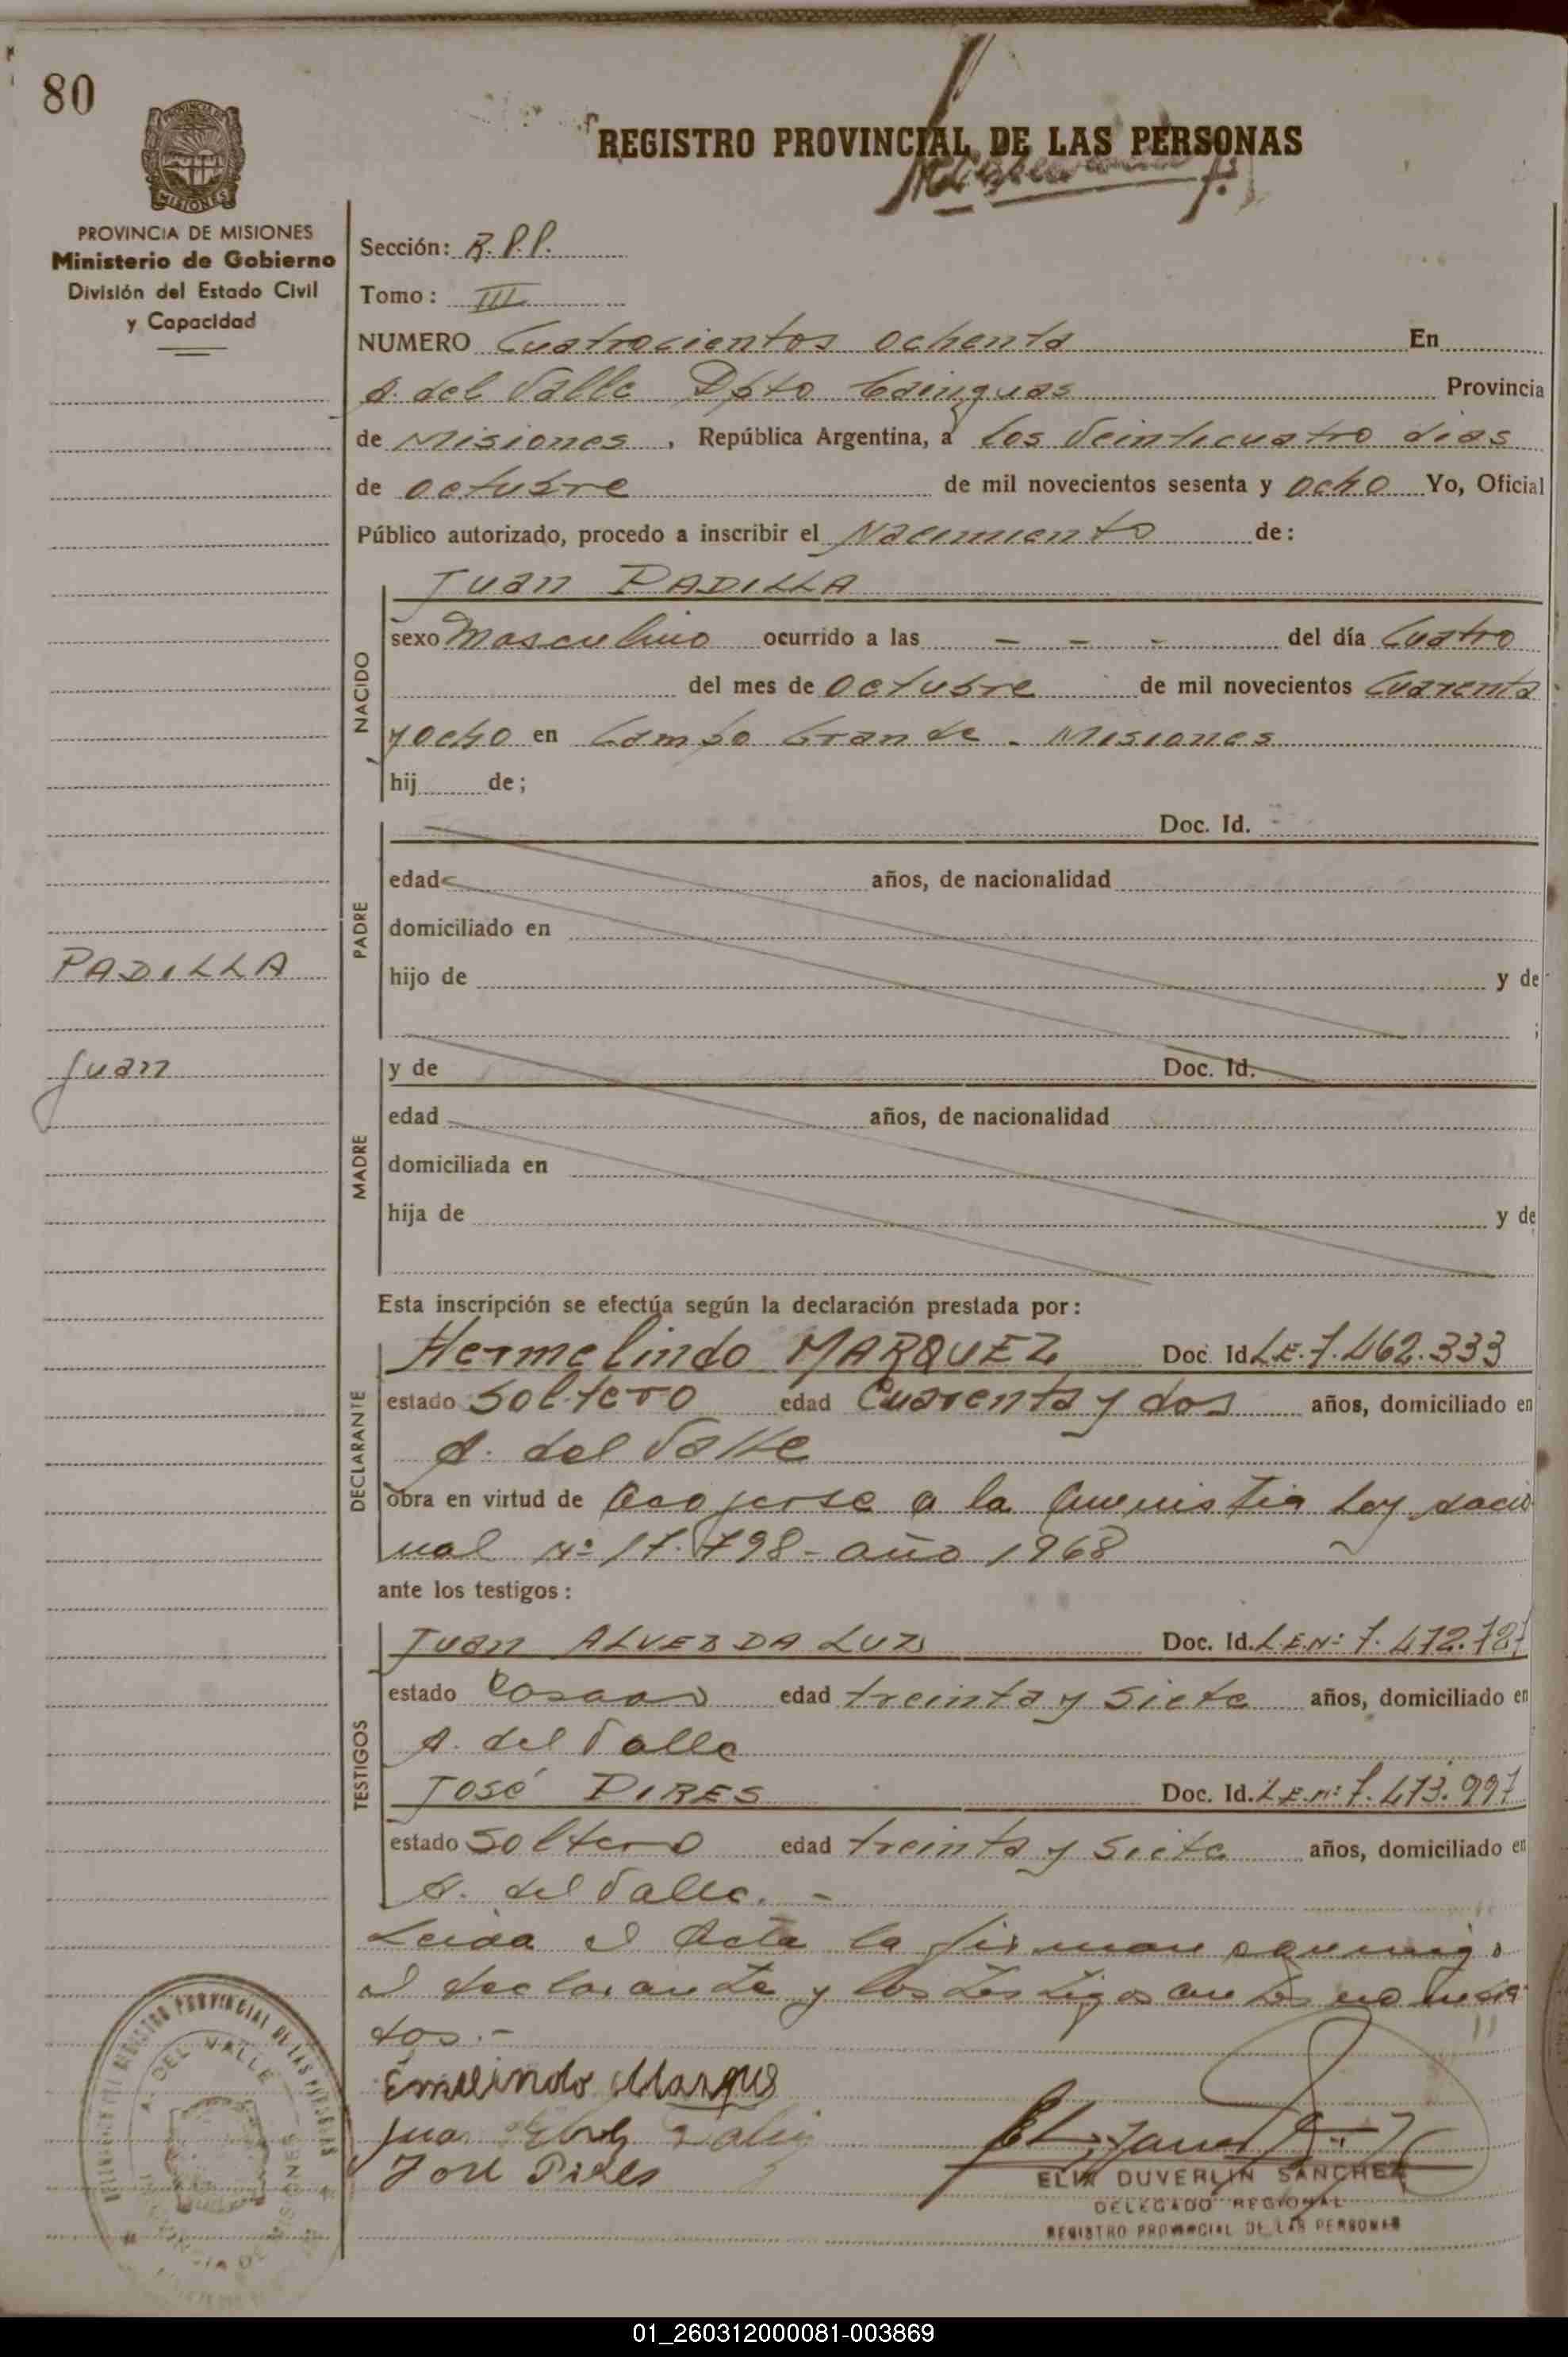 80
REGISTRO PROVINCIAL DE LAS PERSONAS
PROVINCIA DE MISIONES
Ministerio de Gobierno
División del Estado Civil
y Capacidad
Sección: R.P.P.
Tomo: III
NUMERO Cuatrocientos ochenta En
A. del Valle Dpto Cainguas Provincia
de Misiones, República Argentina, a los Veinticuatro dias
de octubre de mil novecientos sesenta y ocho Yo, Oficial
Público autorizado, procedo a inscribir el Nacimiento de:
Juan PADILLA
NACIDO
sexo Masculino ocurrido a las - - - del día Cuatro
del mes de octubre de mil novecientos Cuarenta
y ocho en Campo Grande - Misiones
hij de;
PADRE
Doc. Id.
edad años, de nacionalidad
domiciliado en
hijo de y de
;
PADILLA
Juan
MADRE
y de Doc. Id.
edad años, de nacionalidad
domiciliada en
hija de y de
Esta inscripción se efectúa según la declaración prestada por:
DECLARANTE
Hermelindo MARQUEZ Doc. Id. L.E. 7.462.333
estado Soltero edad Cuarenta y dos años, domiciliado en
A. del Valle
obra en virtud de acojerse a la Amnistia Ley nacio
nal Nº 17.798 - año 1968
ante los testigos:
TESTIGOS
Juan ALVEZ DA LUZ Doc. Id. L.E.Nº 7.472.787
estado Casado edad treinta y siete años, domiciliado en
A. del Valle
José PIRES Doc. Id. L.E.Nº 7.473.997
estado Soltero edad treinta y siete años, domiciliado en
A. del Valle. -
Leida el Acta la firman conmigo
el declarante y los testigos antes
dos.-
José Pires
ELIX DUVERLIN SANCHEZ
DELEGADO REGIONAL
REGISTRO PROVINCIAL DE LAS PERSONAS
REGISTRO PROVINCIAL DE LAS PERSONAS
A. DEL VALLE
01_260312000081-003869